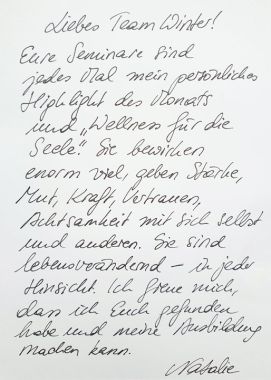 Liebes Team Winter!
Eure Seminare sind
jedes Mal mein persönliches
Highlight des Monats
und „Wellness für die
Seele“. Sie bewirken
enorm viel, geben Stärke,
Mut, Kraft, Vertrauen,
Achtsamkeit mit sich selbst
und anderen. Sie sind
lebensverändernd – in jeder
Hinsicht. Ich freue mich,
dass ich Euch gefunden
habe und meine Ausbildung
machen kann.
Nathalie